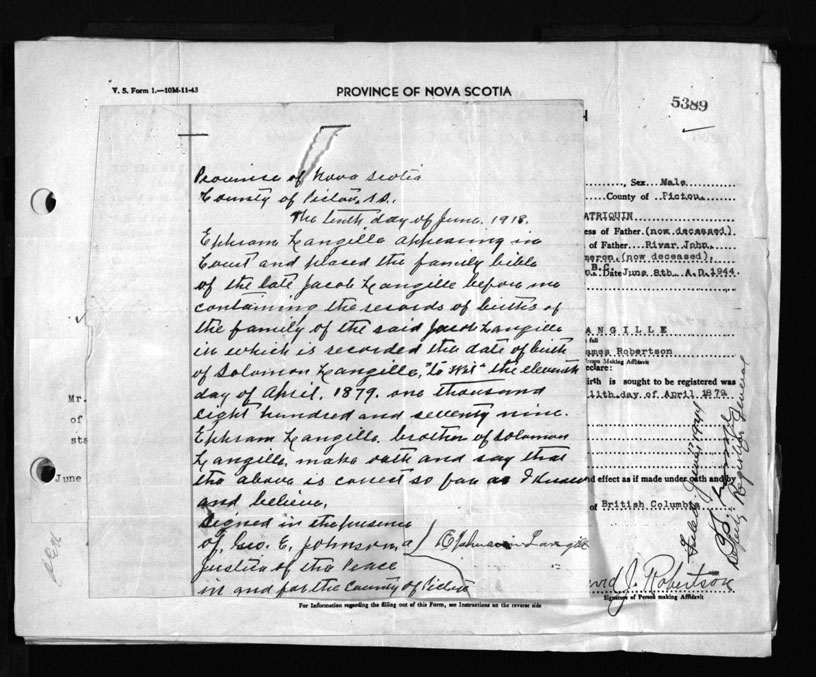 V. S. Form 1.—10M-11-43
PROVINCE OF NOVA SCOTIA
5389
Province of Nova Scotia
County of Pictou, S.S.
The tenth day of June, 1918,
Ephram Langille appearing in
Court and placed the family bible
of the late Jacob Langille before me
containing the records of births of
the family of the said Jacob Langille
in which is recorded the date of birth
of Solomon Langille, "to wit" the eleventh
day of April, 1879. one thousand
eight hundred and seventy nine.
Ephram Langille, brother of Solomon
Langille, make oath and say that
the above is correct so far as I know
and believe,
Signed in the presence
of, Geo. E. Johnson, a
Justice of the Peace
in and for the County of Pictou
Langille
Mr.
of
sta
June
, Sex Male
County of Pictou.
ATRIQUIN
ess of Father (now deceased)
of Father River John.
meron, (now deceased),
B.C.
Date June 8th A.D. 1944.
ANGILLE
full
ames Robertson
Person Making Affidavit
eclare:
irth is sought to be registered was
11th day of April 1879
nd effect as if made under oath and by
of British Columbia
vid J. Robertson
Signature of Person making Affidavit
Filed June 17, 1944
Deputy Registrar General
For Information regarding the filling out of this Form, see Instructions on the reverse side